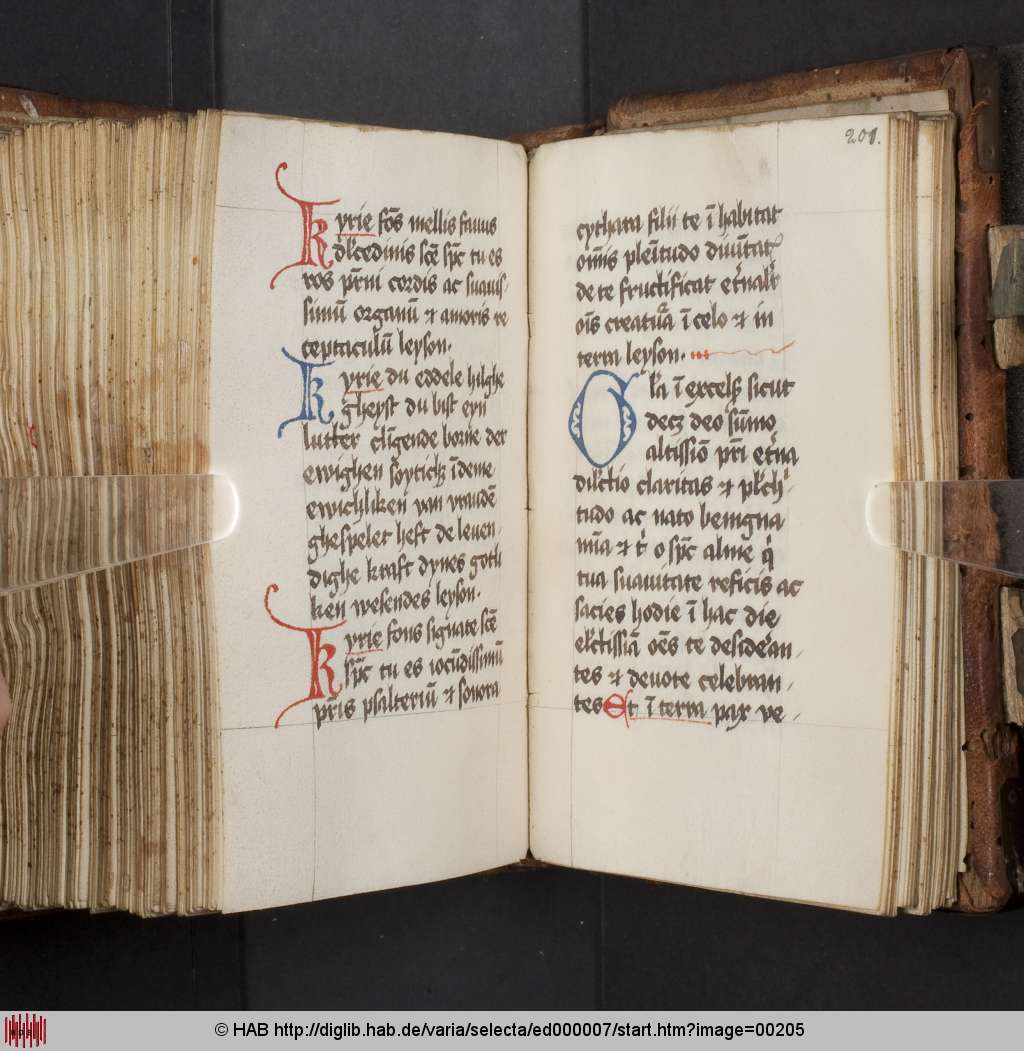 Kyrie fōs mellis favus
dł̄cedinis scē spc̄ tu es
ros pr̄ni cordis ac suavis-
simū organū et amoris re
ceptaculū leyson.
Kyrie du eddele hilghe
gheyst du bist eyn
lutter clīgende borne der
ewighen soyticheit īdeme
ewichliken van vraudē
ghespelet heft de leven-
dighe kraft dynes gotli
ken wesendes leyson.
Kyrie fons signate scē
spc̄ tu es iocūdissimū
pr̄is psalteriū et sonora
201.
cythara filii te ī habitat
oīnis plēitudo divītatis
de te fructificat et'nalit'
oīs creatura ī celo et in
terra leyson.
Gl'ia ī excelsis sicut
decet deo sūmo
altissīo pr̄i et'na
dil'ctio claritas et pl'ch'-
tudo ac nato benigna
mīa et t' o spc̄ alme q'
tua suavitate reficis ac
sacies hodie ī hac die
el'ctissīa oēs te desideran-
tes et devote celebran-
tes Et ī terra pax ve-
© HAB http://diglib.hab.de/varia/selecta/ed000007/start.htm?image=00205